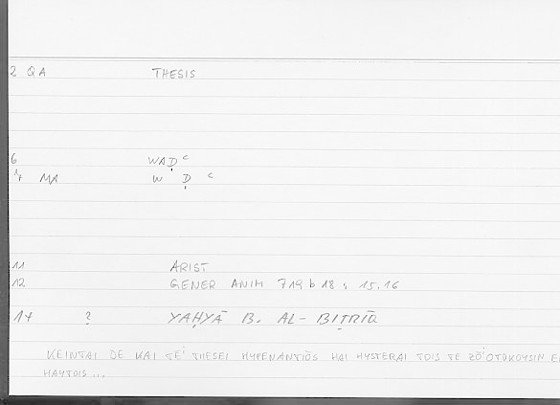 2 QA THESIS
6 WAḌ ᶜ
14 MA W Ḍ ᶜ
11 ARIST
12 GENER ANIM 719 b 18 s 15.16
17 ? YAḤYĀ B. AL-BIṬRĪQ
KEINTAI DE KAI TE' THESEI HYPENANTIŌS HAI HYSTERAI TOIS TE ZŌ'OTOKOYSIN
HAYTOIS ...